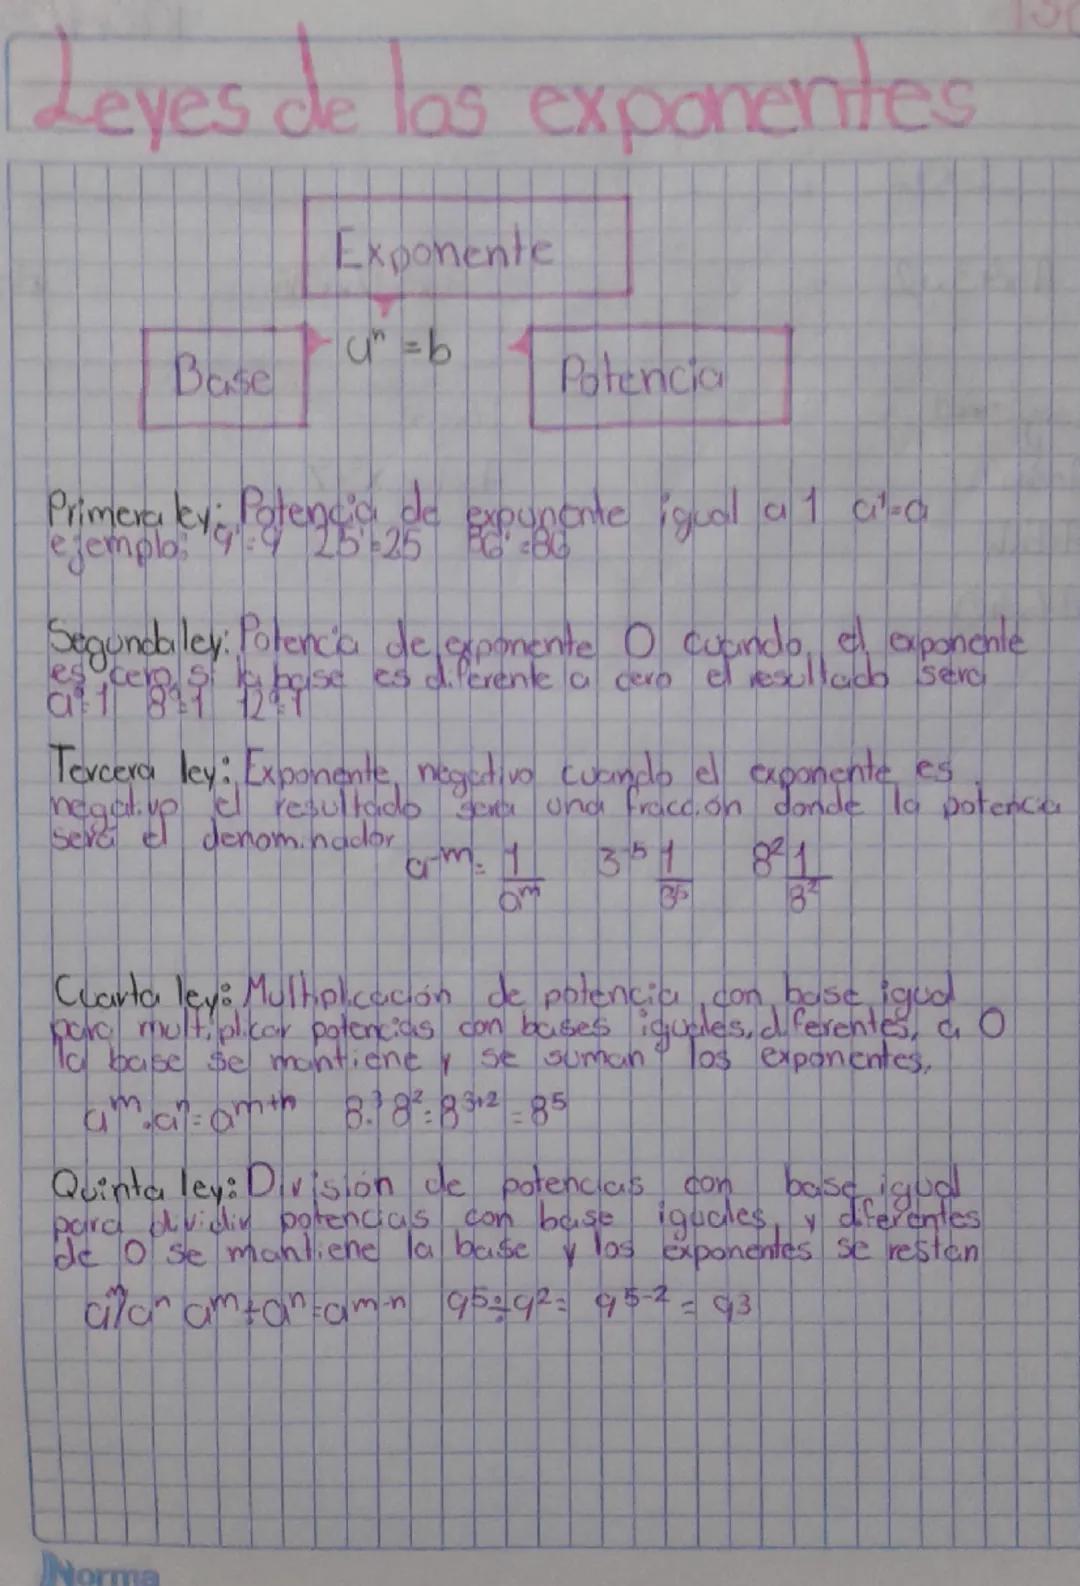 Leyes de los exponentes
Exponente
aⁿ = b
Base
Potencia
Primera ley: Potencia de exponente igual a 1 a¹=a
ejemplo: 9¹=9 25¹=25 86¹=86
Segunda ley: Potencia de exponente 0 cuando el exponente
es cero, si la base es diferente a cero el resultado sera
a⁰=1 8⁰=1 12⁰=1
Tercera ley: Exponente negativo cuando el exponente es
negativo el resultado sera una fracción donde la potencia
será el denominador
a⁻ᵐ = 1/aᵐ 3⁻⁵ 1/3⁵ 8² 1/8²
Cuarta ley: Multiplicación de potencia con base igual
para multiplicar potencias con bases iguales, diferentes, a 0
la base se mantiene y se suman los exponentes,
aᵐ.aⁿ=aᵐ⁺ⁿ 8.³8²=8³⁺²=8⁵
Quinta ley: División de potencias con base igual
para dividir potencias con base iguales, y diferentes
de 0 se mantiene la base y los exponentes se restan
aᵐ/aⁿ aᵐ÷aⁿ=aᵐ⁻ⁿ 9⁵÷9²= 9⁵⁻² = 93
Norma